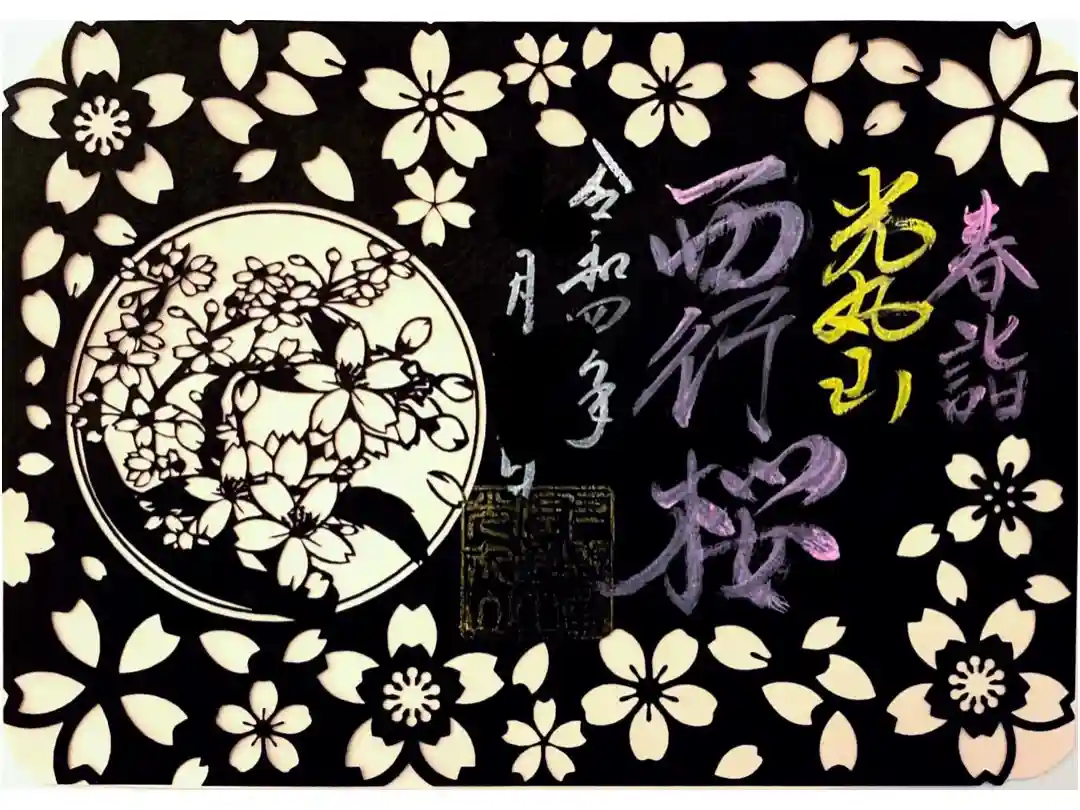 春詣
光丸山
西行桜
令和四年
月 日